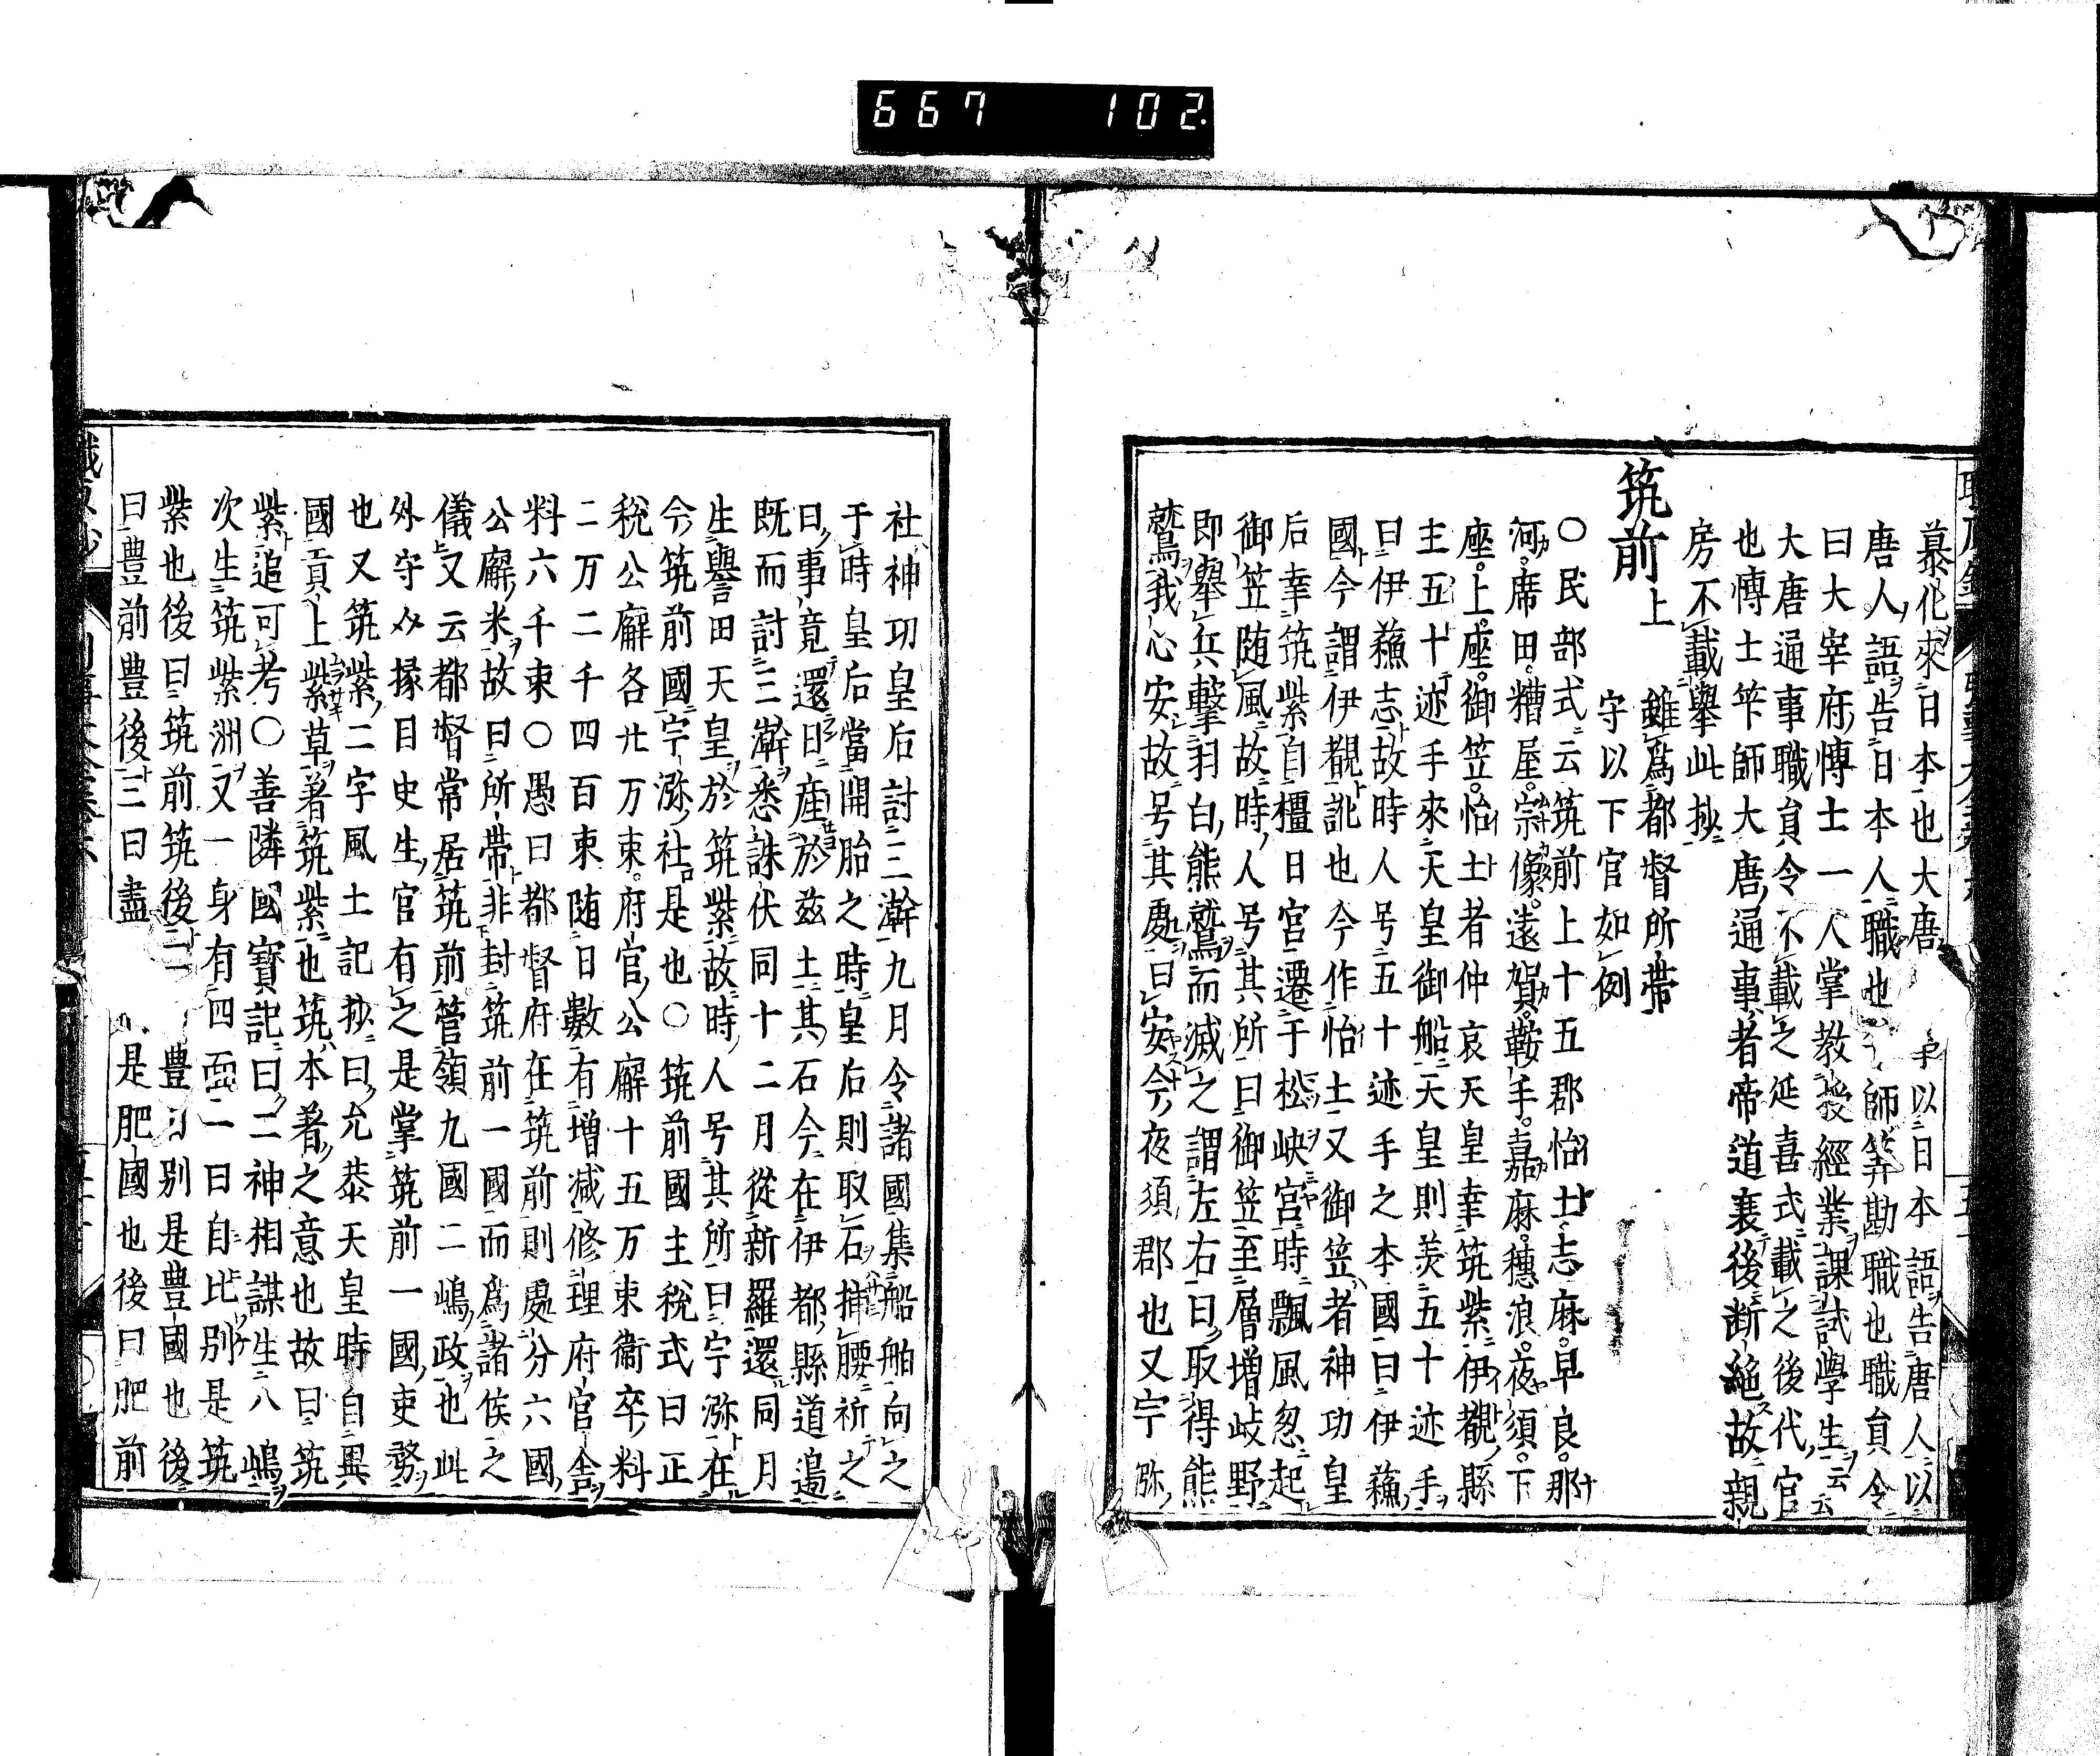 667 102
慕化來日本也大唐 以日本語告唐人以
唐人語告日本人職也 師筭勘職也職貟令
曰大宰府博士一人掌教授經業課試學生云云
大唐通事職貟令不載之延喜式載之後代官
也博士笇師大唐通事者帝道衰後断絶故親
房不載擧此抄
筑前上 雖爲都督所帶
守以下官如例
○民部式云筑前上十五郡怡土志麻早良那
河席田糟屋宗像遠賀鞍手嘉麻穗浪夜須下
座上座御笠怡土者仲哀天皇幸筑紫伊覩縣
主五十迹手來天皇御船天皇則羙五十迹手
曰伊蘓志故時人号五十迹手之本國曰伊蘓
國今謂伊覩訛也今作怡土又御笠者神功皇
后幸筑紫自橿日宮遷于松峽宮時飄風忽起
御笠随風故時人号其所曰御笠至層増岐野
即舉兵擊羽白熊鷲而滅之謂左右曰取得熊
鷲我心安故号其處曰安今夜須郡也又宇㳽
社神功皇后討三瀚九月令諸國集船舶向之
于時皇后當開胎之時皇后則取石揷腰祈之
曰事竟還日產於兹土其石今在伊都縣道邉
既而討三瀚悉誅伏同十二月從新羅還同月
生譽田天皇於筑紫故時人号其所曰宇㳽在
今筑前國宇㳽社是也○筑前國主稅式曰正
稅公廨各廾万束府官公廨十五万束衞卒料
二万二千四百束随日數有増減修理府官舍
料六千束○愚曰都督府在筑前則處分六國
公廨米故曰所帶非封筑前一國而爲諸侯之
儀又云都督常居筑前管領九國二嶋政也此
外守介掾目史生官有之是掌筑前一國吏務
也又筑紫二字風土記抄曰允恭天皇時自異
國貢上紫草著筑紫也筑本著之意也故曰筑
紫追可考○善隣國寶記曰二神相謀生八嶋
次生筑紫洲又一身有四面一曰白比别是筑
紫也後曰筑前筑後二 豊日别是豊國也後
曰豊前豊後三曰盡 是肥國也後曰肥前